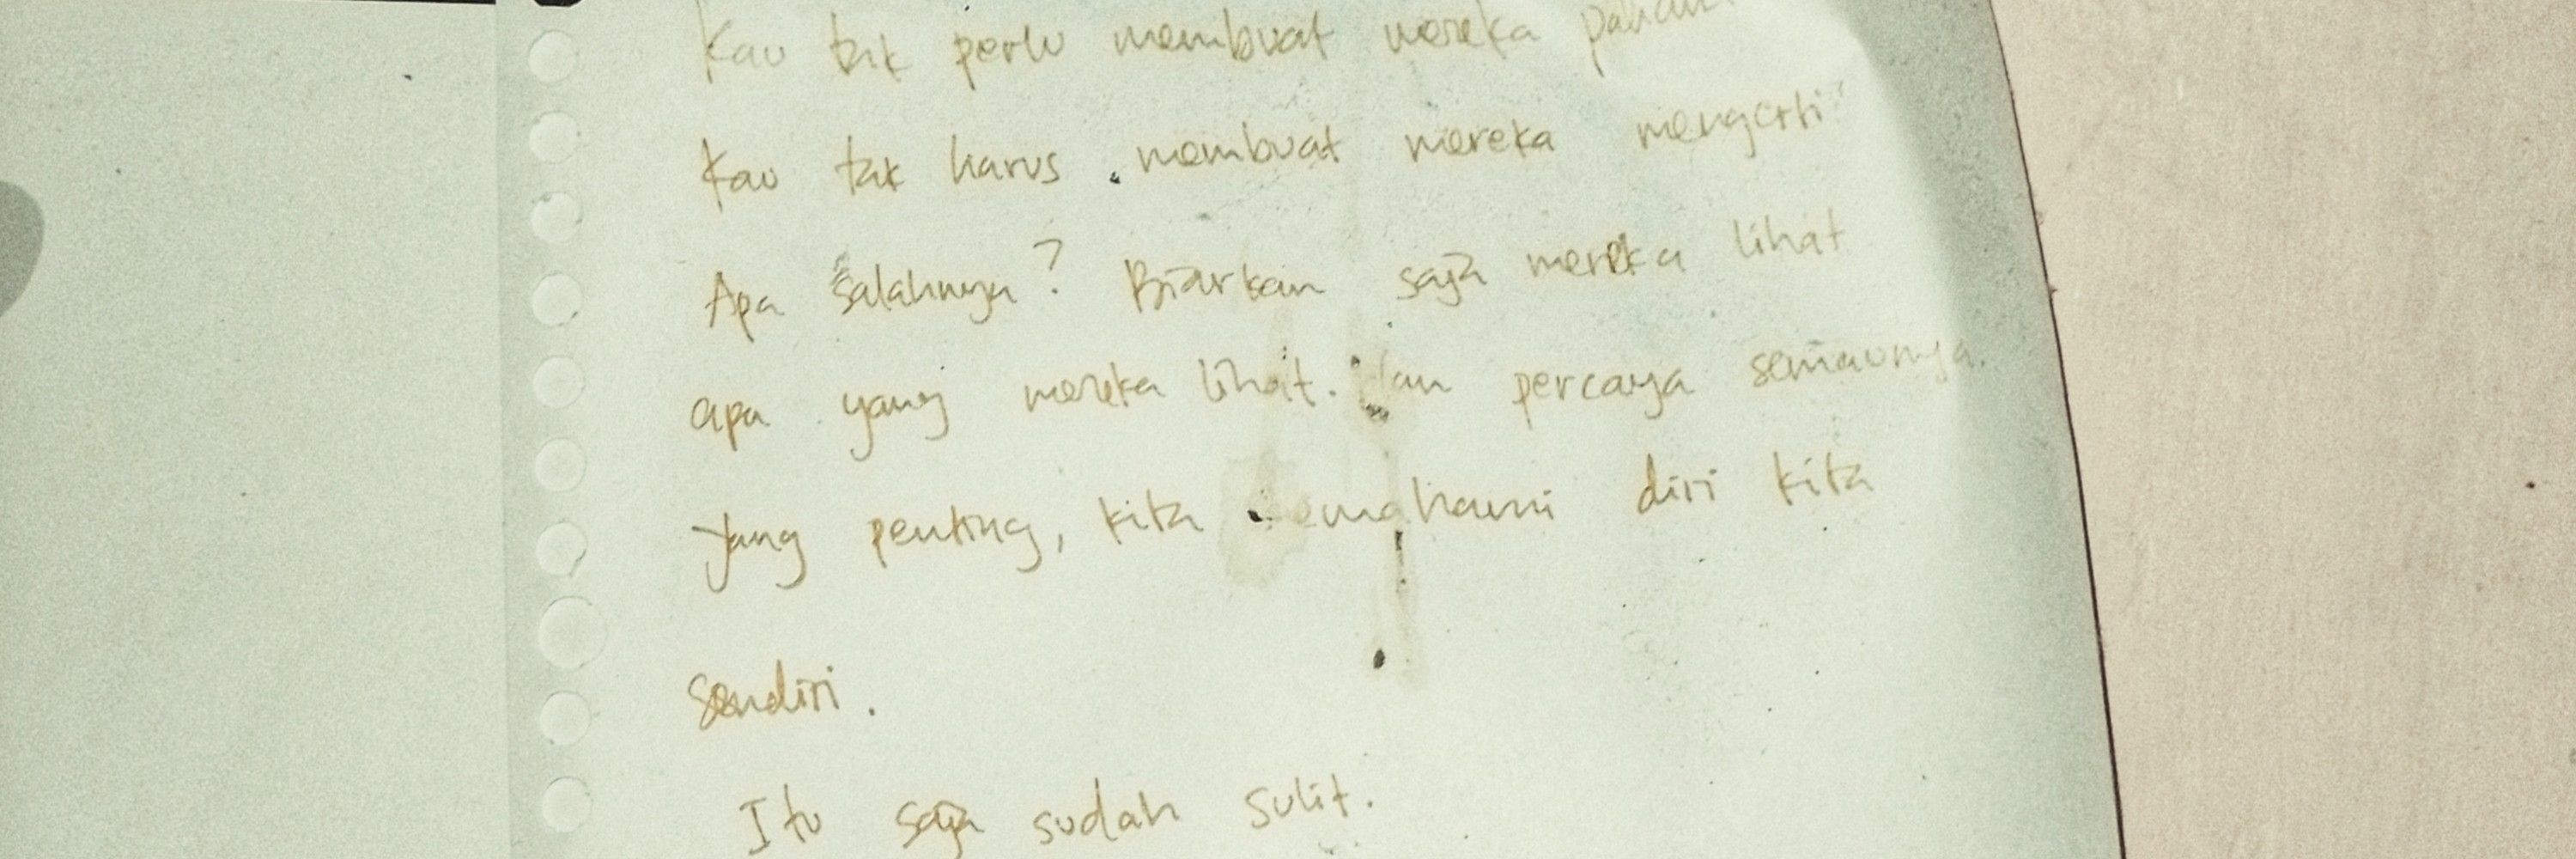 Kau tak perlu membuat mereka paham
Kau tak harus membuat mereka mengerti
Apa salahnya? Biarkan saja mereka lihat
apa yang mereka lihat. dan percaya semaunya.
Yang penting, kita memahami diri kita
sendiri.
Itu saja sudah sulit.